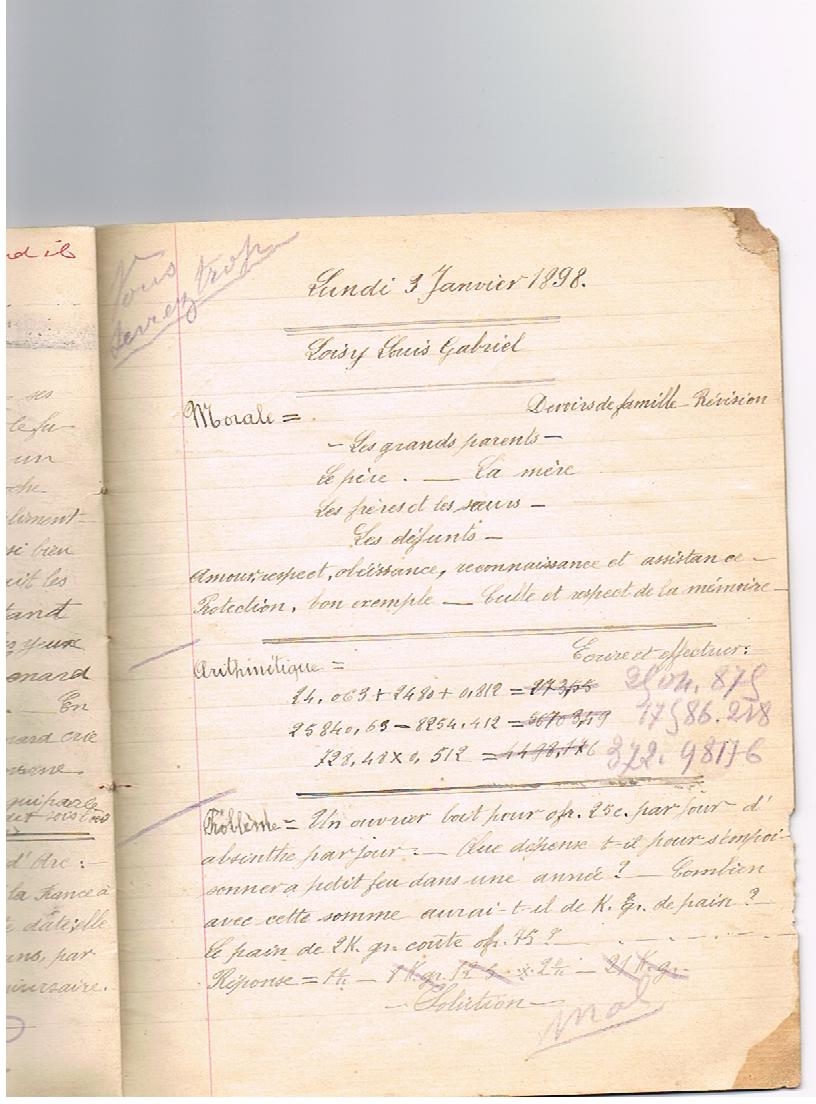 nd il
Vous
serrez trop
Lundi 3 Janvier 1898.
Loisy Louis Gabriel
Morale = Devoirs de famille - Révision
- Les grands parents -
Le père. — La mère
Les frères et les sœurs -
Les défunts -
Amour, respect, obéissance, reconnaissance et assistance -
Protection, bon exemple — Culte et respect de la mémoire -
Arithmétique = Ecrire et effectuer:
24,063 + 2480 + 0,812 = 2504.875
25840,63 - 8254.412 = 17586.218
728,48 x 0,512 = 372.98176
Problème = Un ouvrier boit pour 0fr. 25c. par jour d'
absinthe par jour. — Que dépense t-il pour s'empoi-
sonner a petit feu dans une année? — Combien
avec cette somme aurai-t-il de K. Gr. de pain?
Le pain de 2K. gr. coûte 0fr. 75?
Réponse =
- Solution -
Mal
ses
le fu-
un
che
aliment-
si bien
uit les
tand
yeux
enard
En
nard crie
d'Arc: -
la France à
date, elle
ans, par
niversaire.